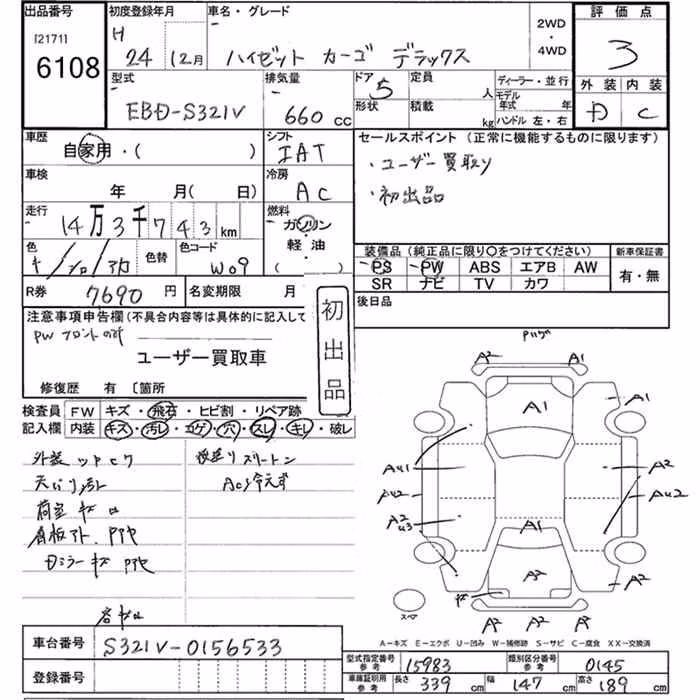 出品番号
[2171]
6108
初度登録年月
H 24 12月
車名・グレード
ハイゼット カーゴ デラックス
2WD
・
4WD
評価点
3
型式
EBD-S321V
排気量
660 cc
ドア
5
形状
定員
人
積載
kg
ディーラー・並行
モデル
年式 年
ハンドル 左・右
外装 内装
D C
車歴
自家用・( )
シフト
IAT
車検
年 月( 日)
冷房
AC
走行
14万3千743 km
燃料
ガソリン
軽油
( )
色
色替
色コード
W09
セールスポイント (正常に機能するものに限ります)
・ユーザー買取り
・初出品
装備品 (純正品に限り〇をつけてください)
PS PW ABS エアB AW
SR ナビ TV カワ
新車保証書
有・無
R券 7690 円
名変期限 月
後日品
初出品
注意事項申告欄 (不具合内容等は具体的に記入して
PW フロントのみ
ユーザー買取車
修復歴 有 〔箇所
検査員
記入欄
FW キズ・飛石・ヒビ割・リペア跡
内装 キズ・汚レ・コゲ・穴・スレ・キレ・破レ
天バリ汚れ
荷室キズ
AC冷えず
A2 A1
A1
A1
A41
A2
A42
A42
A2
43
A1
A2
A2
A2
A2 A2 A2
スペア
A-キズ E-エクボ U-凹み W-補修跡 S-サビ C-腐食 XX-交換済
車台番号
S321V-0156533
登録番号
型式指定番号
参考
15983
類別区分番号
参考
0145
車庫証明用
参考
長さ 339 cm
幅 147 cm
高さ 189 cm